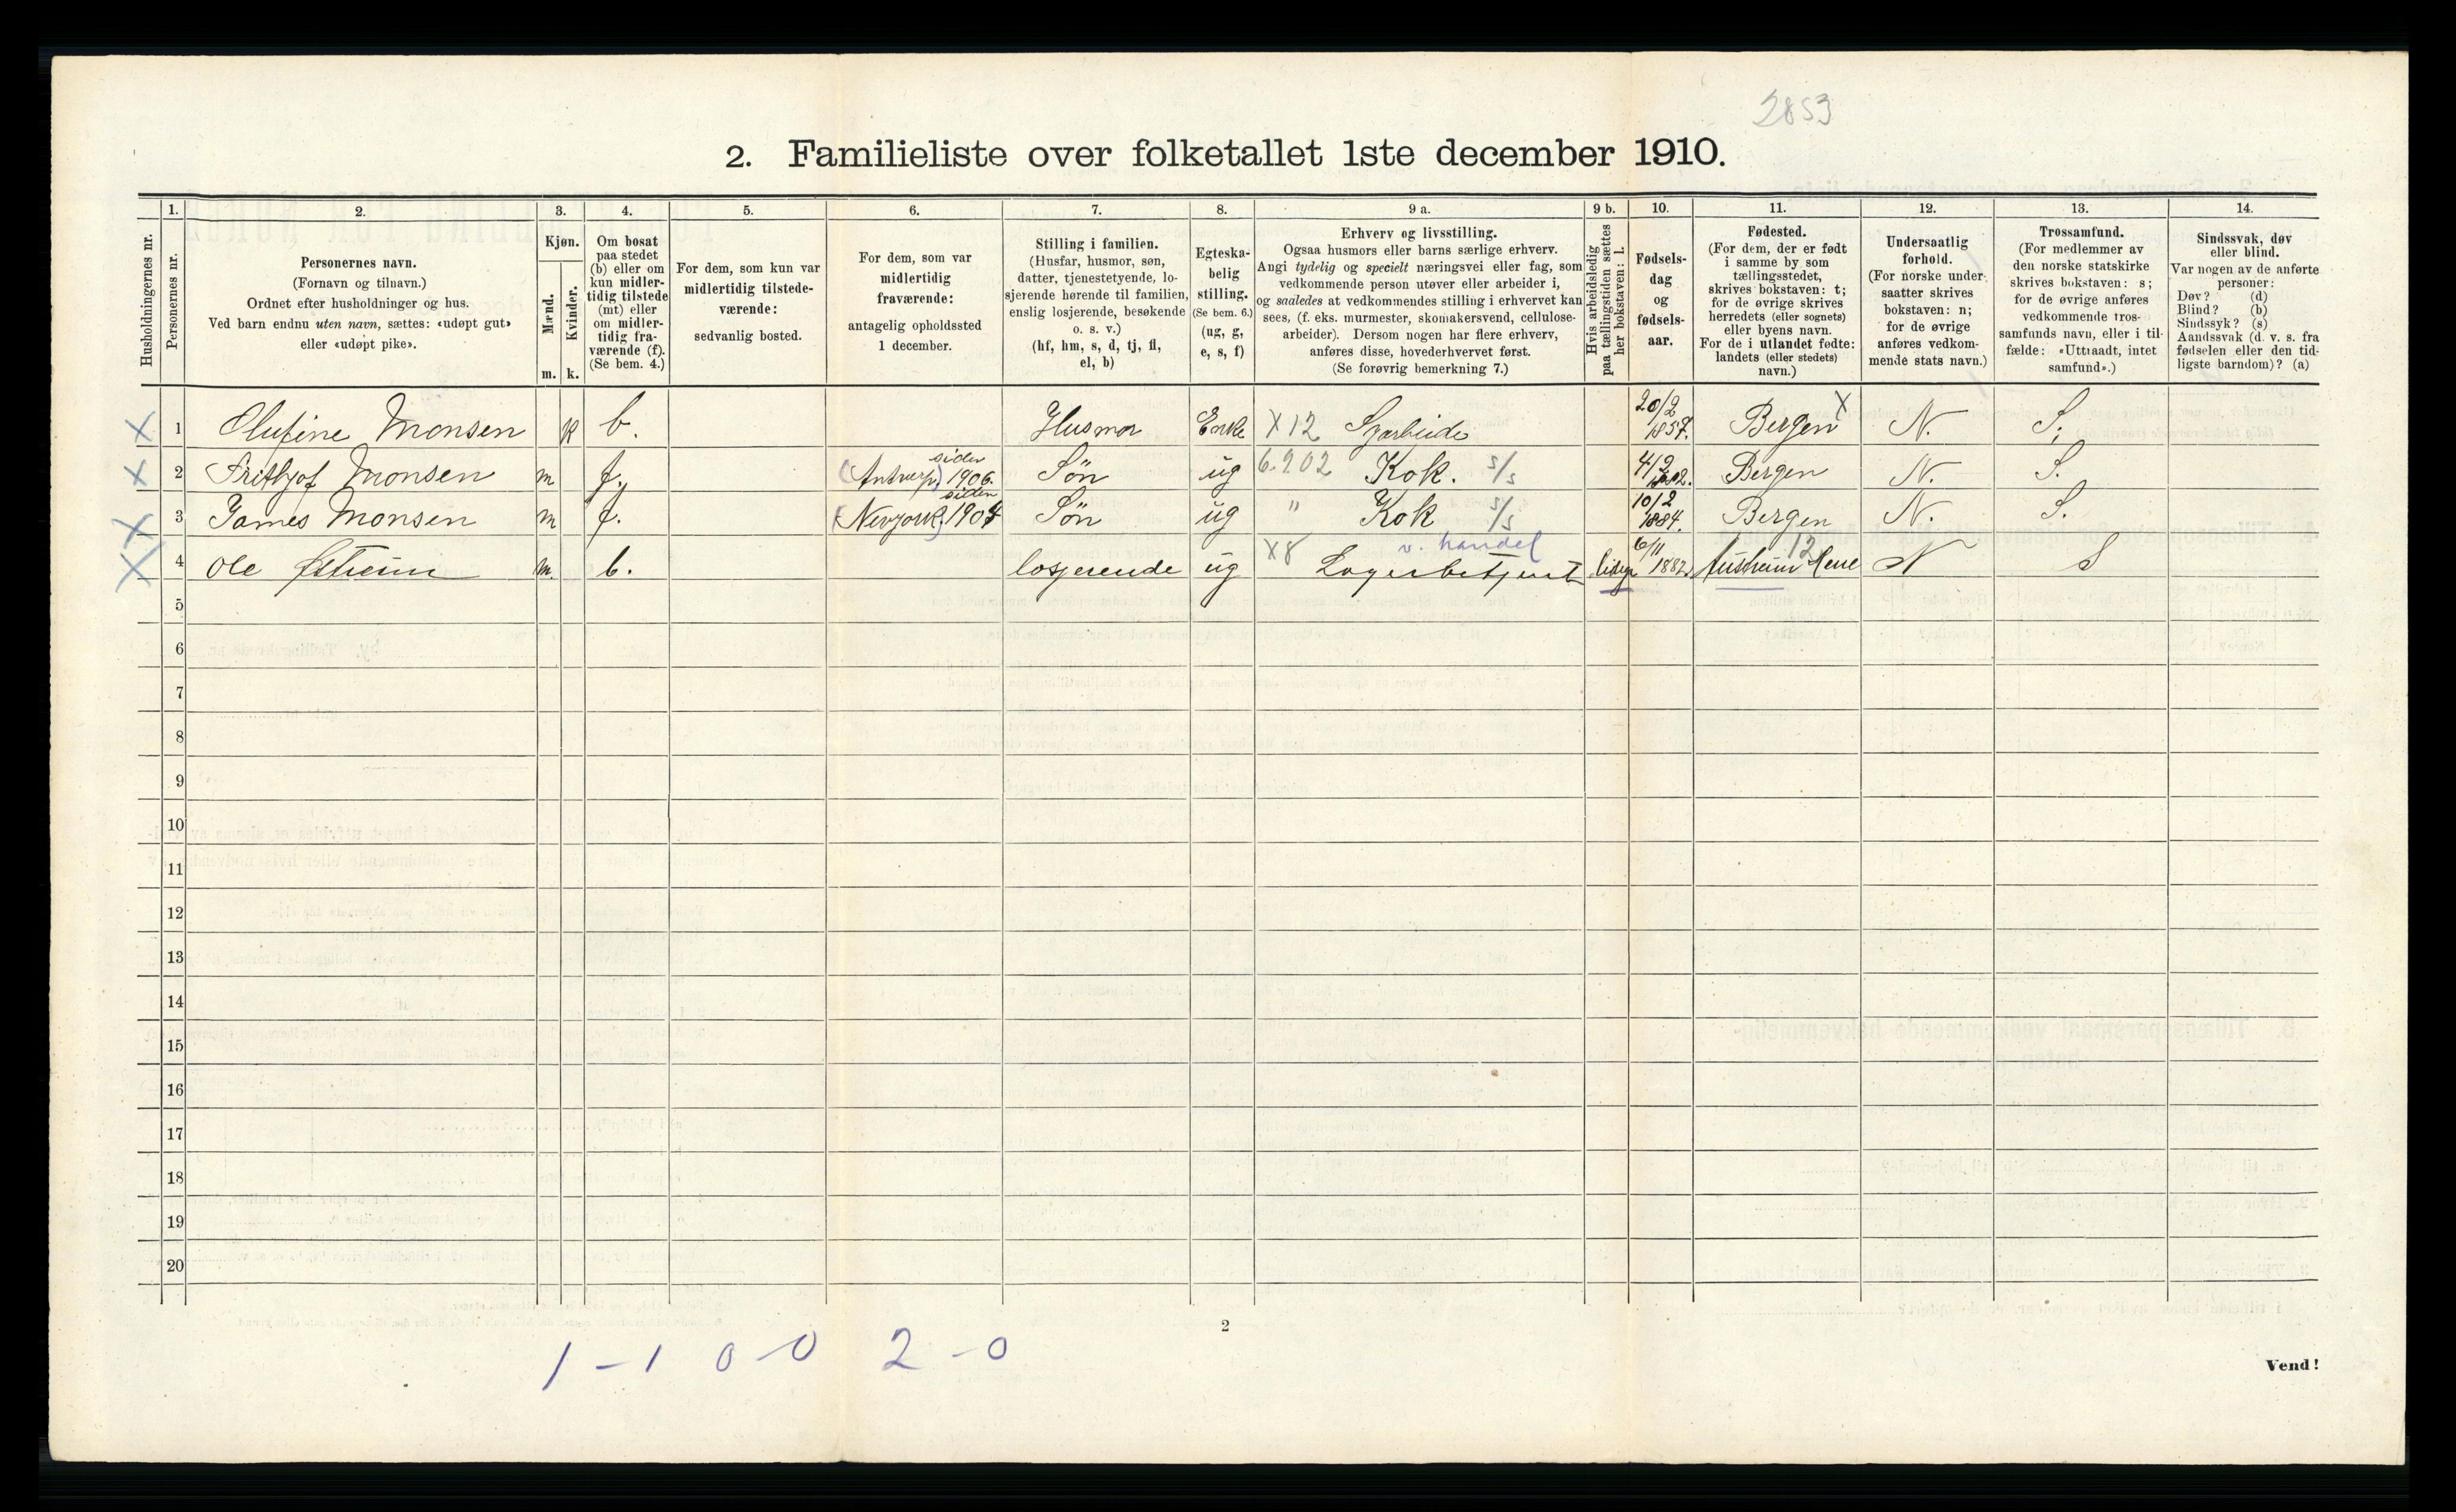 2853
2. Familieliste over folketallet 1ste december 1910.
Husholdningernes nr.
1.
Personernes nr.
2.
Personernes navn.
(Fornavn og tilnavn.)
Ordnet efter husholdninger og hus.
Ved barn endnu uten navn, sættes: «udøpt gut»
eller «udøpt pike».
3.
Kjøn.
Mænd.
Kvinder.
m. k.
4.
Om bosat
paa stedet
(b) eller om
kun midler-
tidig tilstede
(mt) eller
om midler-
tidig fra-
værende (f).
(Se bem. 4.)
5.
For dem, som kun var
midlertidig tilstede-
værende:
sedvanlig bosted.
6.
For dem, som var
midlertidig
fraværende:
antagelig opholdssted
1 december.
7.
Stilling i familien.
(Husfar, husmor, søn,
datter, tjenestetyende, lo-
sjerende hørende til familien,
enslig losjerende, besøkende
o. s. v.)
(hf, hm, s, d, tj, fl,
el, b)
8.
Egteska-
belig
stilling.
(Se bem. 6.)
(ug, g,
e, s, f)
9 a.
Erhverv og livsstilling.
Ogsaa husmors eller barns særlige erhverv.
Angi tydelig og specielt næringsvei eller fag, som
vedkommende person utøver eller arbeider i,
og saaledes at vedkommendes stilling i erhvervet kan
sees, (f. eks. murmester, skomakersvend, cellulose-
arbeider). Dersom nogen har flere erhverv,
anføres disse, hovederhvervet først.
(Se forøvrig bemerkning 7.)
9 b.
Hvis arbeidsledig
paa tællingstiden sættes
her bokstaven: l.
10.
Fødsels-
dag
og
fødsels-
aar.
11.
Fødested.
(For dem, der er født
i samme by som
tællingsstedet,
skrives bokstaven: t;
for de øvrige skrives
herredets (eller sognets)
eller byens navn.
For de i utlandet fødte:
landets (eller stedets)
navn.)
12.
Undersaatlig
forhold.
(For norske under-
saatter skrives
bokstaven: n;
for de øvrige
anføres vedkom-
mende stats navn.)
13.
Trossamfund.
(For medlemmer av
den norske statskirke
skrives bokstaven: s;
for de øvrige anføres
vedkommende tros-
samfunds navn, eller i til-
fælde: «Uttraadt, intet
samfund».)
14.
Sindssvak, døv
eller blind.
Var nogen av de anførte
personer:
Døv? (d)
Blind? (b)
Sindssyk? (s)
Aandssvak (d. v. s. fra
fødselen eller den tid-
ligste barndom)? (a)
X 1 Olufine Monsen k b. Husmor Enke X12 20/2 1857. Bergen X N. S.
X 2 Frithjof Monsen m f. (Antverp.) siden 1906. Søn ug 6.202 Kok. s/s Bergen N. S.
X 3 James Monsen m f. (Nevjork) siden 1907 Søn ug " Kok s/s 10/2 1884. Bergen N. S.
X 4 Ole m. b. losjerende ug X8 Lagerbetjent v. handel ledig 6/11 1882 12 N S
5
6
7
8
9
10
11
12
13
14
15
16
17
18
19
20
2
1 - 1 0 - 0 2 - 0
Vend!